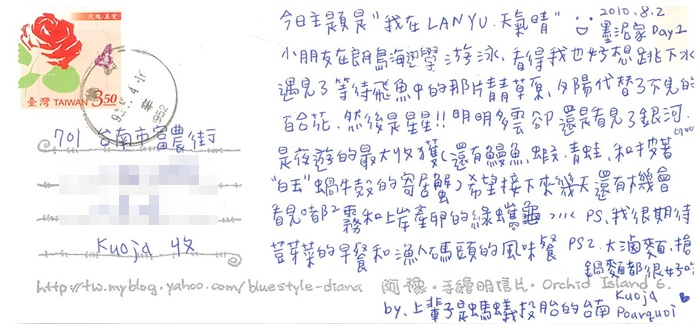 玫瑰·真愛
臺灣 TAIWAN 3.50
701 台南市富農街
Kuoja 收
今日主題是"我在 LANYU. 天氣晴"
2010.8.2
墨泥家 Day1
小朋友在朗島海邊學游泳. 看得我也好想跳下水
遇見了等待飛魚中的那片青青草原. 夕陽代替了不見的
百合花. 然後是星星!! 明明多雲卻還是看見了銀河.
是夜遊的最大收獲(還有鰻魚. 蝦. 青蛙. 和揹著
"白玉"蝸牛殼的寄居蟹) 希望接下來幾天還有機會
看見嘟嘟霧和上岸產卵的綠蠵龜 ›››‹‹ PS. 我很期待
荳芽菜的早餐和漁人碼頭的風味餐 PS2. 大滷麵. 搶
鍋麵都很好吃
http://tw.myblog.yahoo.com/bluestyle-diana 蘭嶼·手繪明信片·Orchid Island 6.
by. 上輩子是螞蟻投胎的台南 Kuoja
Pourquoi